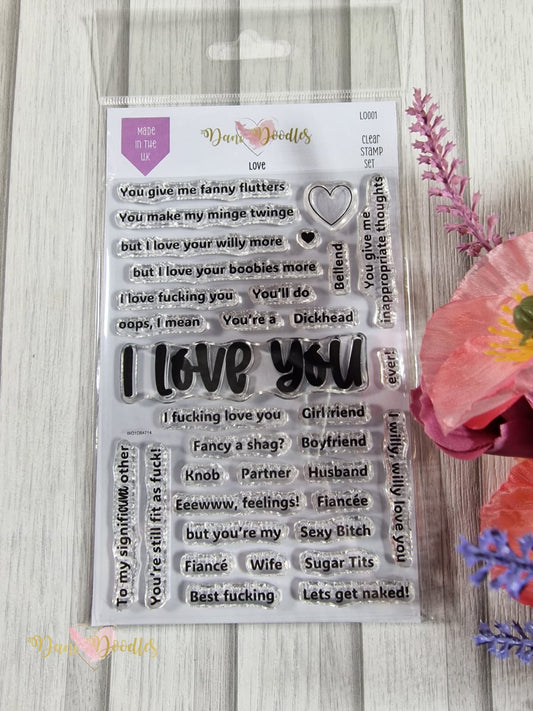 MADE
IN THE
UK
Dani Doodles
LO001
CLEAR
STAMP
SET
LOVE
You give me fanny flutters
You make my minge twinge
but I love your willy more
but I love your boobies more
Bellend
You give me
inappropriate thoughts
I love fucking you
You'll do
oops, I mean
You're a
Dickhead
I love you
ever!
I fucking love you
Girlfriend
Fancy a shag?
Boyfriend
I willy, willy love you
Knob
Partner
Husband
Eeewww, feelings!
Fiancée
but you're my
Sexy Bitch
Fiancé
Wife
Sugar Tits
Best fucking
Lets get naked!
To my significunt other
You're still fit as fuck!
Dani Doodles